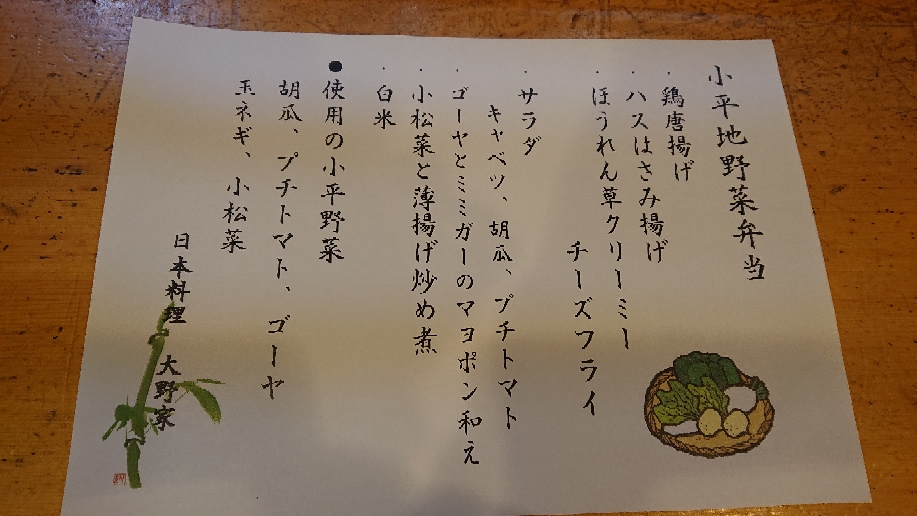 小平地野菜弁当
・鶏唐揚げ
・ハスはさみ揚げ
・ほうれん草クリーミー
チーズフライ
・サラダ
キャベツ、胡瓜、プチトマト
・ゴーヤとミミガーのマヨポン和え
・小松菜と薄揚げ炒め煮
・白米
●使用の小平野菜
胡瓜、プチトマト、ゴーヤ
玉ネギ、小松菜
日本料理 大野家